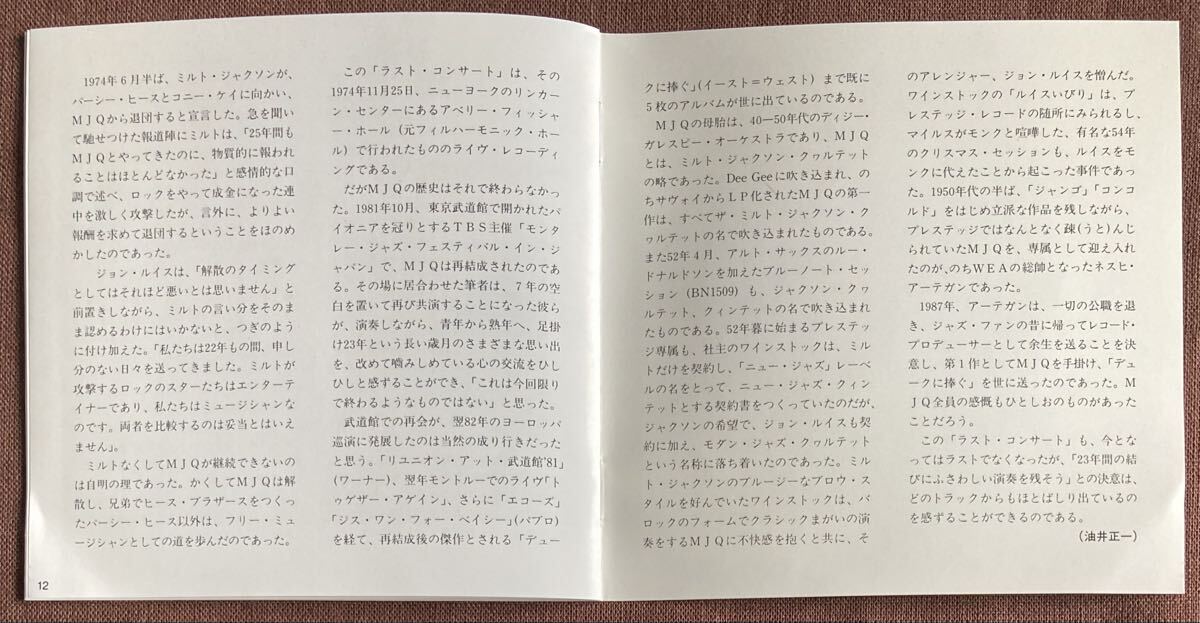 1974年6月半ば、ミルト・ジャクソンが、
パーシー・ヒースとコニー・ケイに向かい、
ＭＪＱから退団すると宣言した。急を聞い
て馳せつけた報道陣にミルトは、「25年間も
ＭＪＱとやってきたのに、物質的に報われ
ることはほとんどなかった」と感情的な口
調で述べ、ロックをやって成金になった連
中を激しく攻撃したが、言外に、よりよい
報酬を求めて退団するということをほのめ
かしたのであった。
ジョン・ルイスは、「解散のタイミング
としてはそれほど悪いとは思いません」と
前置きしながら、ミルトの言い分をそのま
ま認めるわけにはいかないと、つぎのよう
に付け加えた。「私たちは22年もの間、申し
分のない日々を送ってきました。ミルトが
攻撃するロックのスターたちはエンターテ
イナーであり、私たちはミュージシャンな
のです。両者を比較するのは妥当とはいえ
ません」。
ミルトなくしてＭＪＱが継続できないの
は自明の理であった。かくしてＭＪＱは解
散し、兄弟でヒース・ブラザースをつくっ
たパーシー・ヒース以外は、フリー・ミュ
ージシャンとしての道を歩んだのであった。
12
この「ラスト・コンサート」は、その
1974年11月25日、ニューヨークのリンカー
ン・センターにあるアベリー・フィッシャ
ー・ホール（元フィルハーモニック・ホー
ル）で行われたもののライヴ・レコーディ
ングである。
だがＭＪＱの歴史はそれで終わらなかっ
た。1981年10月、東京武道館で開かれたパ
イオニアを冠りとするＴＢＳ主催「モンタ
レー・ジャズ・フェスティバル・イン・ジ
ャパン」で、ＭＪＱは再結成されたのであ
る。その場に居合わせた筆者は、７年の空
白を置いて再び共演することになった彼ら
が、演奏しながら、青年から熟年へ、足掛
け23年という長い歳月のさまざまな思い出
を、改めて噛みしめている心の交流をひし
ひしと感ずることができ、「これは今回限り
で終わるようなものではない」と思った。
武道館での再会が、翌82年のヨーロッパ
巡演に発展したのは当然の成り行きだった
と思う。「リユニオン・アット・武道館'81」
（ワーナー）、翌年モントルーでのライヴ「ト
ゥゲザー・アゲイン」、さらに「エコーズ」
「ジス・ワン・フォー・ベイシー」（パブロ）
を経て、再結成後の傑作とされる「デュー
クに捧ぐ」（イースト＝ウェスト）まで既に
５枚のアルバムが世に出ているのである。
ＭＪＱの母胎は、40―50年代のディジー・
ガレスピー・オーケストラであり、ＭＪＱ
とは、ミルト・ジャクソン・クヮルテット
の略であった。Dee Geeに吹き込まれ、の
ちサヴォイからＬＰ化されたＭＪＱの第一
作は、すべてザ・ミルト・ジャクソン・ク
ヮルテットの名で吹き込まれたものである。
また52年４月、アルト・サックスのルー・
ドナルドソンを加えたブルーノート・セッ
ション（BN1509）も、ジャクソン・クヮ
ルテット、クィンテットの名で吹き込まれ
たものである。52年暮に始まるプレステッ
ジ専属も、社主のワインストックは、ミル
トだけを契約し、「ニュー・ジャズ」レーベ
ルの名をとって、ニュー・ジャズ・クィン
テットとする契約書をつくっていたのだが、
ジャクソンの希望で、ジョン・ルイスも契
約に加え、モダン・ジャズ・クヮルテット
という名称に落ち着いたのであった。ミル
ト・ジャクソンのブルージーなブロウ・ス
タイルを好んでいたワインストックは、バ
ロックのフォームでクラシックまがいの演
奏をするＭＪＱに不快感を抱くと共に、そ
のアレンジャー、ジョン・ルイスを憎んだ。
ワインストックの「ルイスいびり」は、プ
レステッジ・レコードの随所にみられるし、
マイルスがモンクと喧嘩した、有名な54年
のクリスマス・セッションも、ルイスをモ
ンクに代えたことから起こった事件であっ
た。1950年代の半ば、「ジャンゴ」「コンコ
ルド」をはじめ立派な作品を残しながら、
プレステッジではなんとなく疎（うと）んじ
られていたＭＪＱを、専属として迎え入れ
たのが、のちＷＥＡの総帥となったネスヒ・
アーテガンであった。
1987年、アーテガンは、一切の公職を退
き、ジャズ・ファンの昔に帰ってレコード・
プロデューサーとして余生を送ることを決
意し、第１作としてＭＪＱを手掛け、「デュ
ークに捧ぐ」を世に送ったのであった。Ｍ
ＪＱ全員の感慨もひとしおのものがあった
ことだろう。
この「ラスト・コンサート」も、今とな
ってはラストでなくなったが、「23年間の結
びにふさわしい演奏を残そう」との決意は、
どのトラックからもほとばしり出ているの
を感ずることができるのである。
（油井正一）